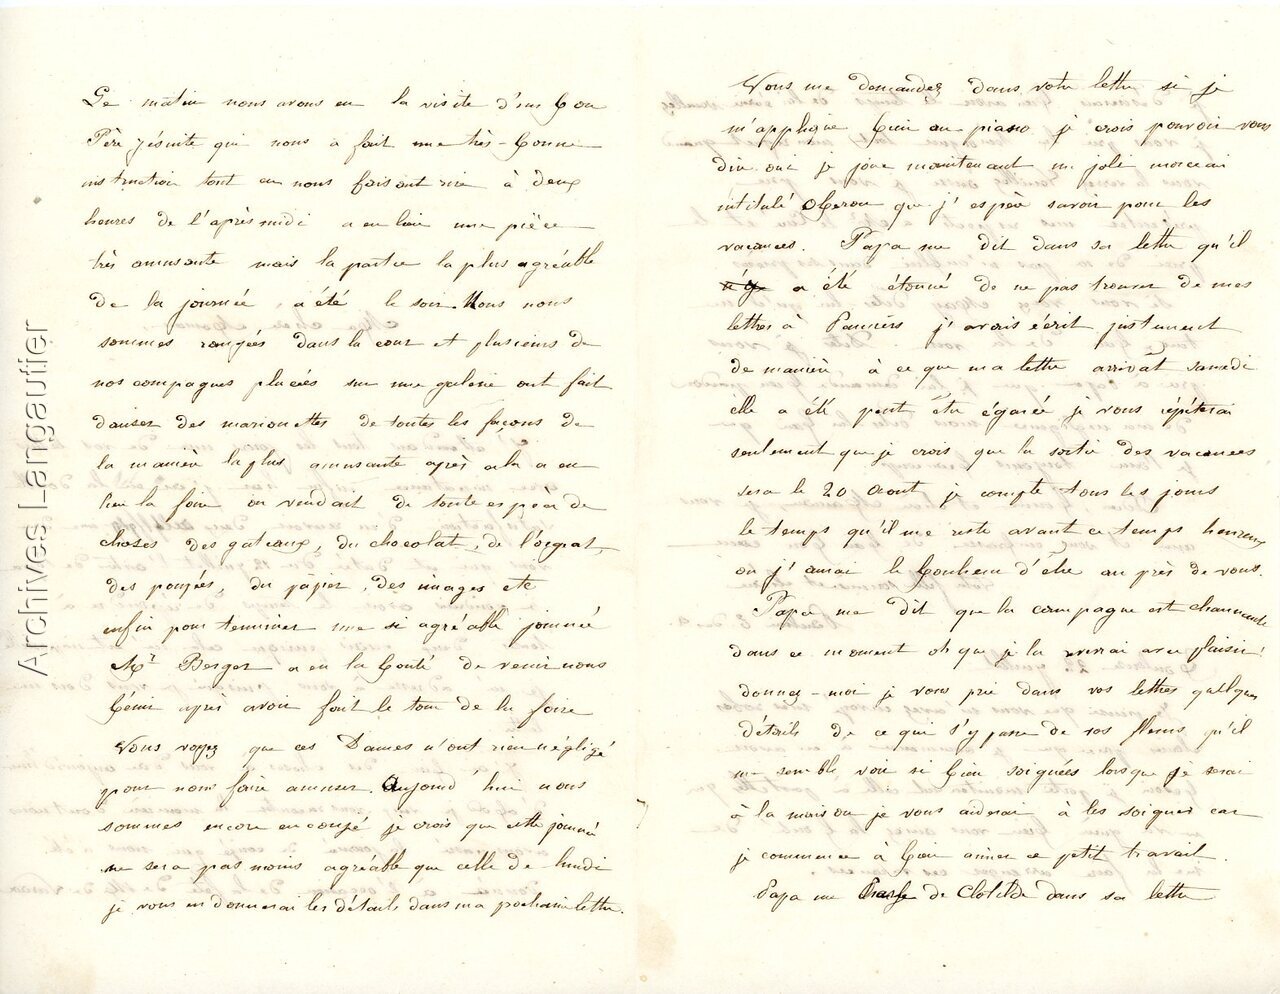 Le matin nous avons eu la visite d'un bon
Père jésuite qui nous a fait une très-bonne
instruction tout en nous faisant rire à deux
heures de l'après midi a eu lieu une pièce
très amusante mais la partie la plus agréable
de la journée, a été le soir. Nous nous
sommes rangées dans la cour et plusieurs de
nos compagnes placées sur une galerie ont fait
danser des marionettes de toutes les façons de
la manière la plus amusante après cela a eu
lieu la foire on vendait de toute espèce de
choses des gateaux, du chocolat, de l'orgeat,
des poupées, du papier, des images etc
enfin pour terminer une si agréable journée
Mr Berger a eu la bonté de venir nous
bénir après avoir fait le tour de la foire
Vous voyez que ces Dames n'ont rien négligé
pour nous faire amuser. Aujourd'hui nous
sommes encore en congé je crois que cette journée
ne sera pas moins agréable que celle de lundi
je vous en donnerai les détails dans ma prochaine lettre.
Vous me demandez dans votre lettre si je
m'applique bien au piano je crois pouvoir vous
dire oui je joue maintenant un joli morceau
intitulé Oberon que j'espère savoir pour les
vacances. Papa me dit dans sa lettre qu'il
n'y a été étonné de ne pas trouver de mes
lettres à Pamiers j'avais écrit justement
de manière à ce que ma lettre arrivât samedi
elle a été peut être égarée je vous répéterai
seulement que je crois que la sortie des vacances
sera le 20 Aout je compte tous les jours
le temps qu'il me reste avant ce temps heureux
où j'aurai le bonheur d'être au près de vous.
Papa me dit que la campagne est charmante
dans ce moment oh que je la verrai avec plaisir!
donnez-moi je vous prie dans vos lettres quelques
détails de ce qui s'y passe de vos fleurs qu'il
me semble voir si bien soignées lorsque je serai
à la maison je vous aiderai à les soigner car
je commence à bien aimer ce petit travail.
Papa me parle de Clotilde dans sa lettre
Archives Langautier